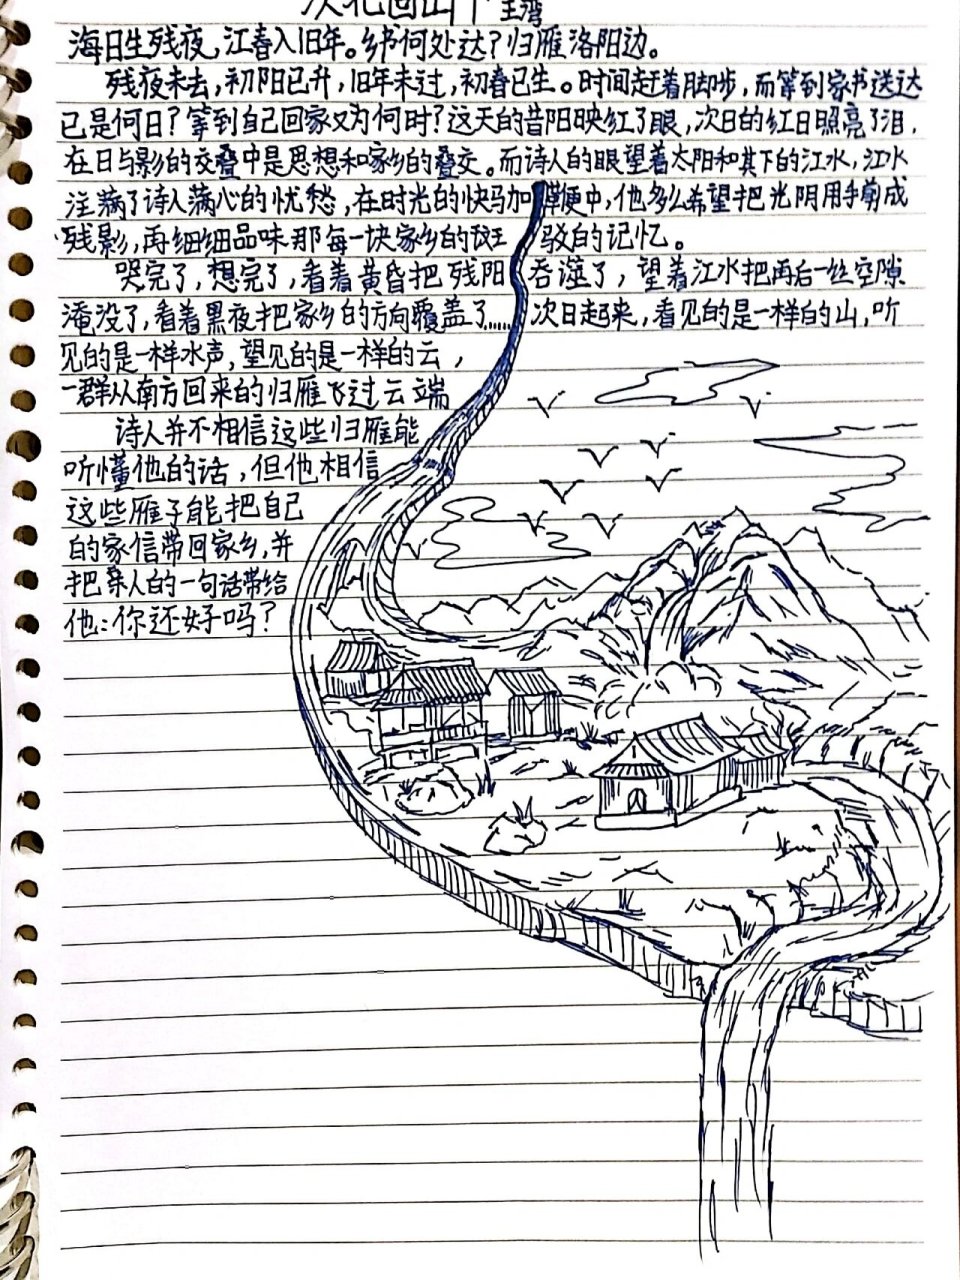 次北固山下 王湾
海日生残夜,江春入旧年。乡书何处达?归雁洛阳边。
残夜未去,初阳已升,旧年未过,初春已生。时间赶着脚步,而等到家书送达
已是何日?等到自己回家又为何时?这天的昔阳映红了眼,次日的红日照亮了泪,
在日与影的交叠中是思想和家乡的叠交。而诗人的眼望着太阳和其下的江水,江水
注满了诗人满心的忧愁,在时光的快马加鞭便中,他多么希望把光阴用手剪成
残影,再细细品味那每一块家乡的斑驳的记忆。
哭完了,想完了,看着黄昏把残阳吞噬了,望着江水把再后一丝空隙
淹没了,看着黑夜把家乡的方向覆盖了……次日起来,看见的是一样的山,听
见的是一样水声,望见的是一样的云,
一群从南方回来的归雁飞过云端
诗人并不相信这些归雁能
听懂他的话,但他相信
这些雁子能把自己
的家信带回家乡,并
把亲人的一句话带给
他:你还好吗?